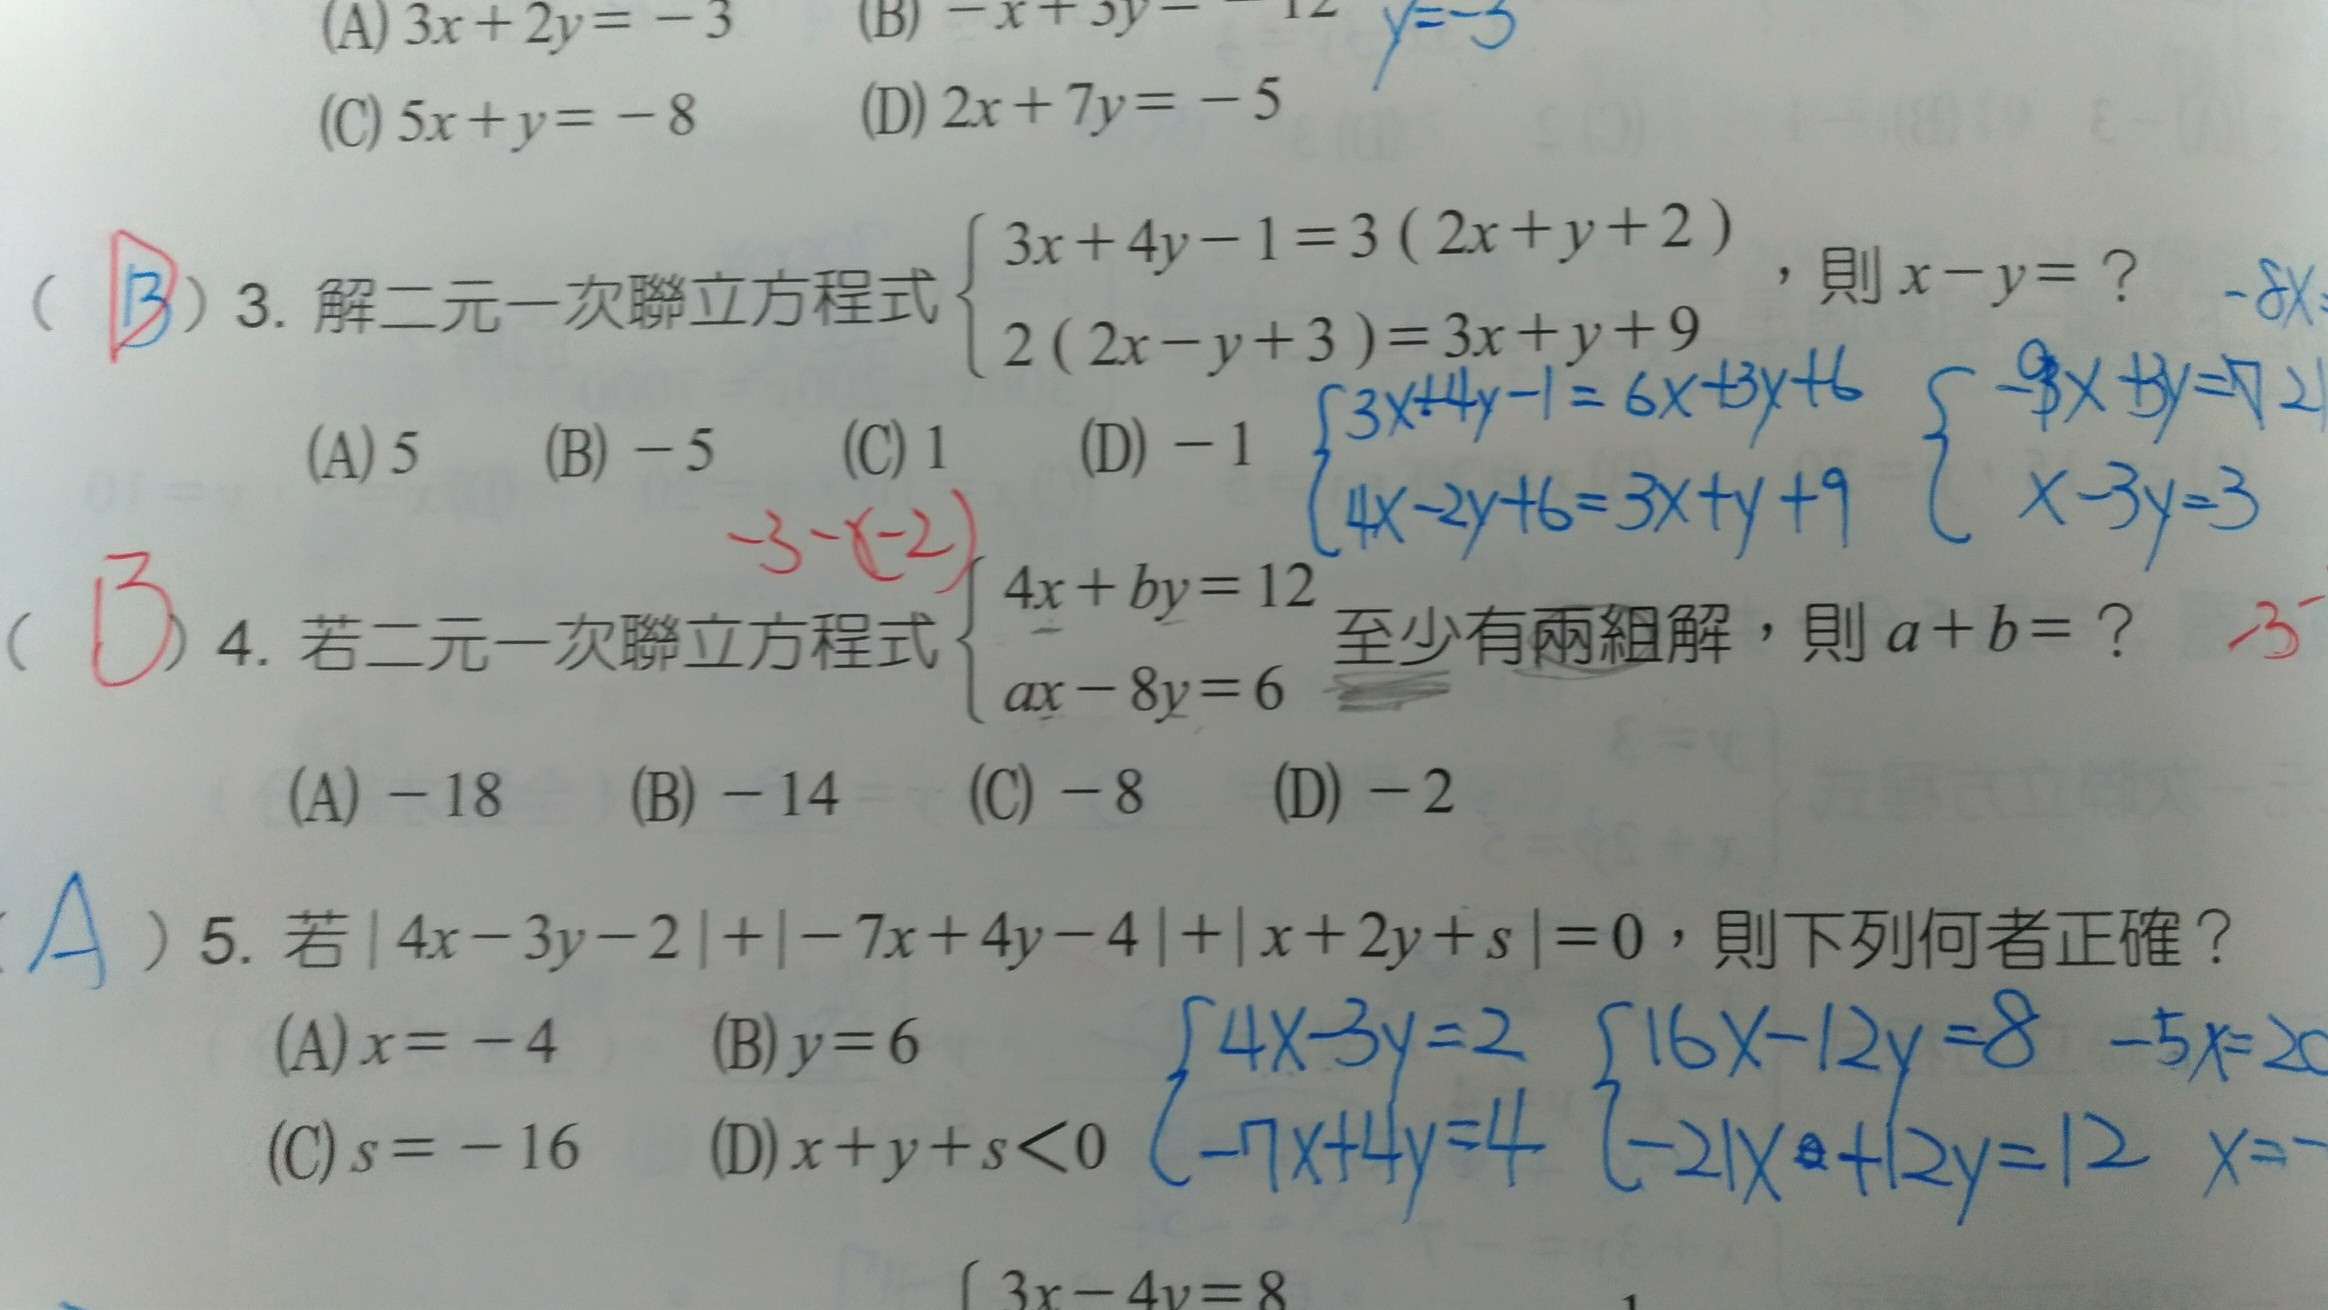 (A) 3x+2y=-3 (B) -x+3y=-12 y=-3
(C) 5x+y=-8 (D) 2x+7y=-5
(B) 3. 解二元一次聯立方程式 { 3x+4y-1=3(2x+y+2)
2(2x-y+3)=3x+y+9 ,則 x-y=?
-8x=
(A) 5 (B) -5 (C) 1 (D) -1
{ 3x+4y-1=6x+3y+6
4x-2y+6=3x+y+9
x-3y=3
-3-(-2)
(B) 4. 若二元一次聯立方程式 { 4x+by=12
ax-8y=6 至少有兩組解,則 a+b=?
-3-
(A) -18 (B) -14 (C) -8 (D) -2
(A) 5. 若|4x-3y-2|+|-7x+4y-4|+|x+2y+s|=0,則下列何者正確?
(A) x=-4 (B) y=6
(C) s=-16 (D) x+y+s<0
{ 4x-3y=2
-7x+4y=4
{ 16x-12y=8
-21x+12y=12
-5x=20
x=-
{ 3x-4y=8